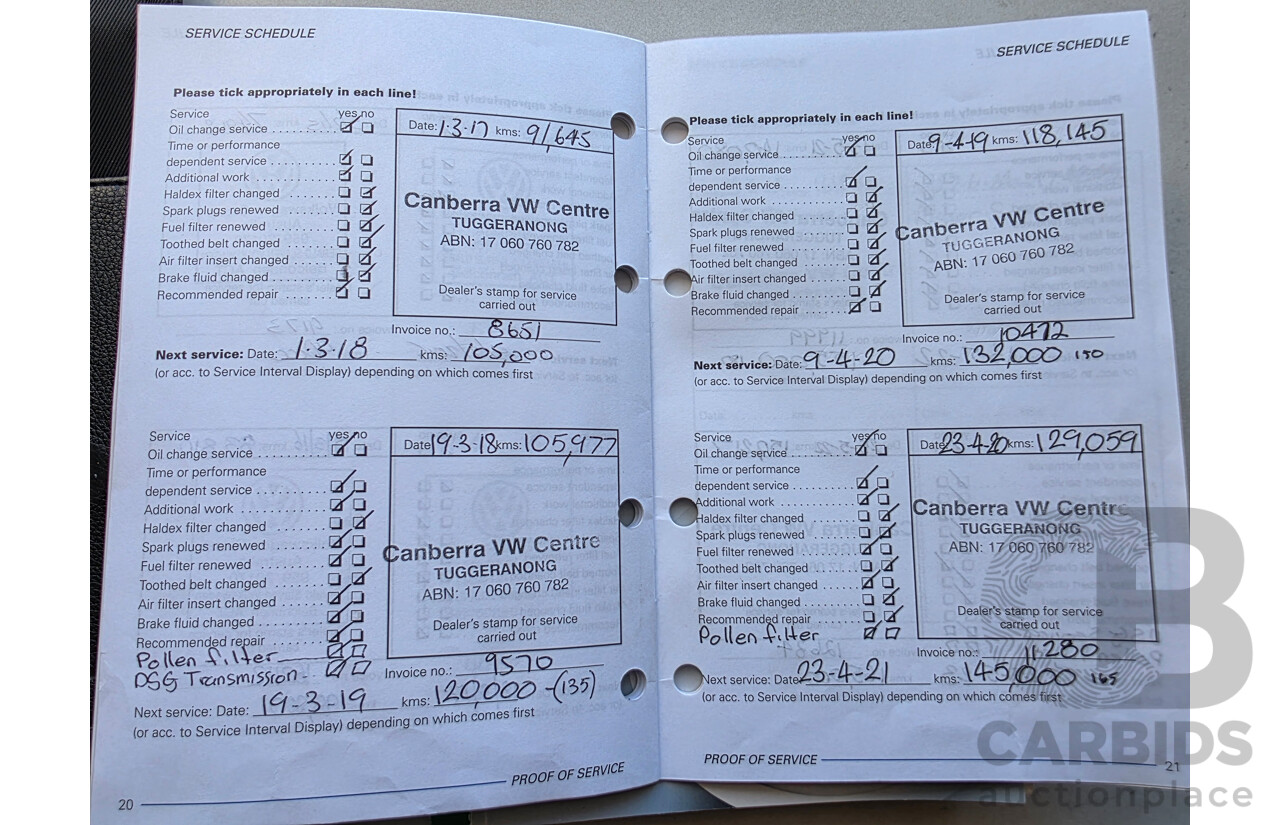 SERVICE SCHEDULE
Please tick appropriately in each line!
Service yes no
Oil change service
Time or performance
dependent service
Additional work
Haldex filter changed
Spark plugs renewed
Fuel filter renewed
Toothed belt changed
Air filter insert changed
Brake fluid changed
Recommended repair
Date: 1·3·17 kms: 91,645
Canberra VW Centre
TUGGERANONG
ABN: 17 060 760 782
Dealer's stamp for service
carried out
Invoice no.: 8651
Next service: Date: 1·3·18 kms: 105,000
(or acc. to Service Interval Display) depending on which comes first
Service yes no
Oil change service
Time or performance
dependent service
Additional work
Haldex filter changed
Spark plugs renewed
Fuel filter renewed
Toothed belt changed
Air filter insert changed
Brake fluid changed
Recommended repair
Pollen filter
DSG Transmission
Date 19·3·18 kms: 105,977
Canberra VW Centre
TUGGERANONG
ABN: 17 060 760 782
Dealer's stamp for service
carried out
Invoice no.: 9570
Next service: Date: 19-3-19 kms: 120,000 -(135)
(or acc. to Service Interval Display) depending on which comes first
PROOF OF SERVICE
20
SERVICE SCHEDULE
Please tick appropriately in each line!
Service yes no
Oil change service
Time or performance
dependent service
Additional work
Haldex filter changed
Spark plugs renewed
Fuel filter renewed
Toothed belt changed
Air filter insert changed
Brake fluid changed
Recommended repair
Date: 9-4-19 kms: 118,145
Canberra VW Centre
TUGGERANONG
ABN: 17 060 760 782
Dealer's stamp for service
carried out
Invoice no.: 10472
Next service: Date: 9-4-20 kms: 132,000 150
(or acc. to Service Interval Display) depending on which comes first
Service yes no
Oil change service
Time or performance
dependent service
Additional work
Haldex filter changed
Spark plugs renewed
Fuel filter renewed
Toothed belt changed
Air filter insert changed
Brake fluid changed
Recommended repair
Pollen filter
Date 23-4-20 kms: 129,059
Canberra VW Centre
TUGGERANONG
ABN: 17 060 760 782
Dealer's stamp for service
carried out
Invoice no.: 11280
Next service: Date: 23-4-21 kms: 145,000 165
(or acc. to Service Interval Display) depending on which comes first
PROOF OF SERVICE
21
B
CARBIDS
auctionplace